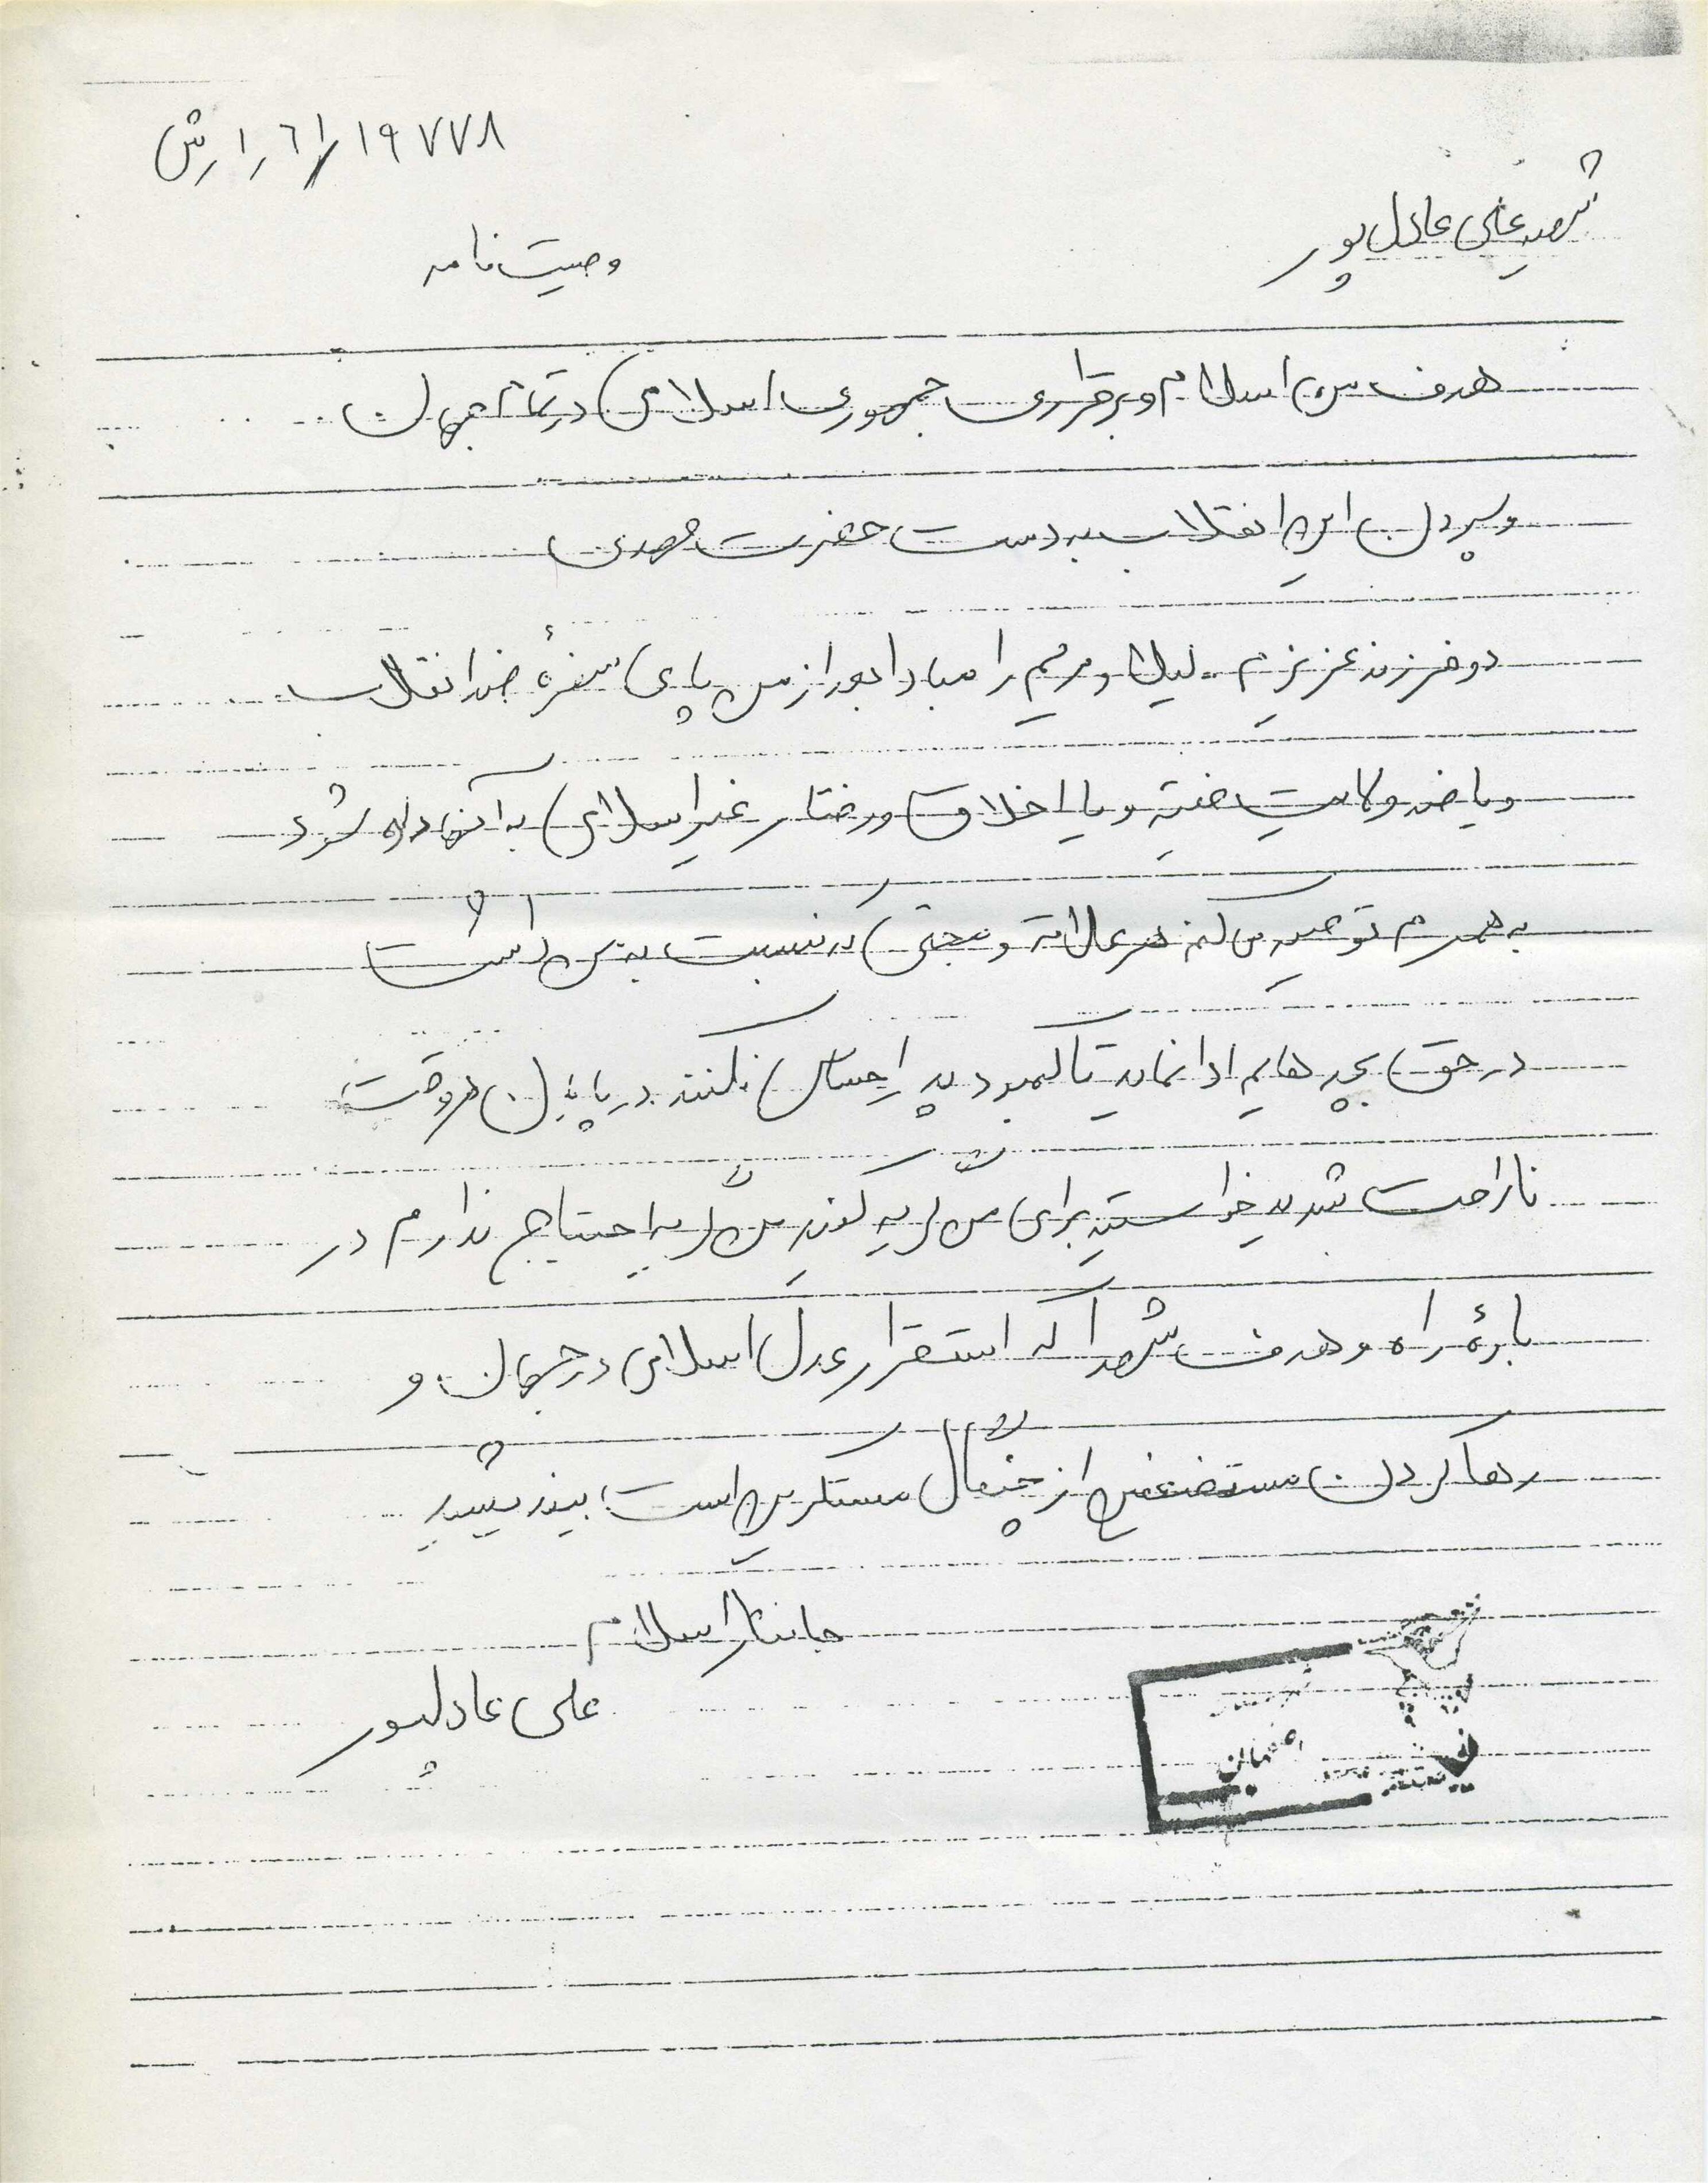 ۱۹۷۷۸/۶۱ر۱رش
شهید علی عادل پور
وصیت نامه
هدف من اسلام و برقراری جمهوری اسلامی در تمام جهان
و سپردن این انقلاب به دست حضرت مهدی
دو فرزند عزیزم لیلا و مریم را مبادا بعد از من پای سفرهٔ ضد انقلاب
و یا ضد ولایت فقیه و یا اخلاق و رفتار غیر اسلامی به آنها داده شود
به همسرم توصیه می کنم هر علاقه و محبتی که نسبت به من داشت
در حق بچه هایم ادا نماید تا کمبود پدر احساس نکنند در پایان هر وقت
ناراحت شدید خواستید برای من گریه کنید من گریه احتیاج ندارم در
بارهٔ راه و هدف شهدا که استقرار عدل اسلامی در جهان و
رها کردن مستضعفین از چنگال مستکبرین است بیندیشید
جانثار اسلام
علی عادلپور
اصفهان